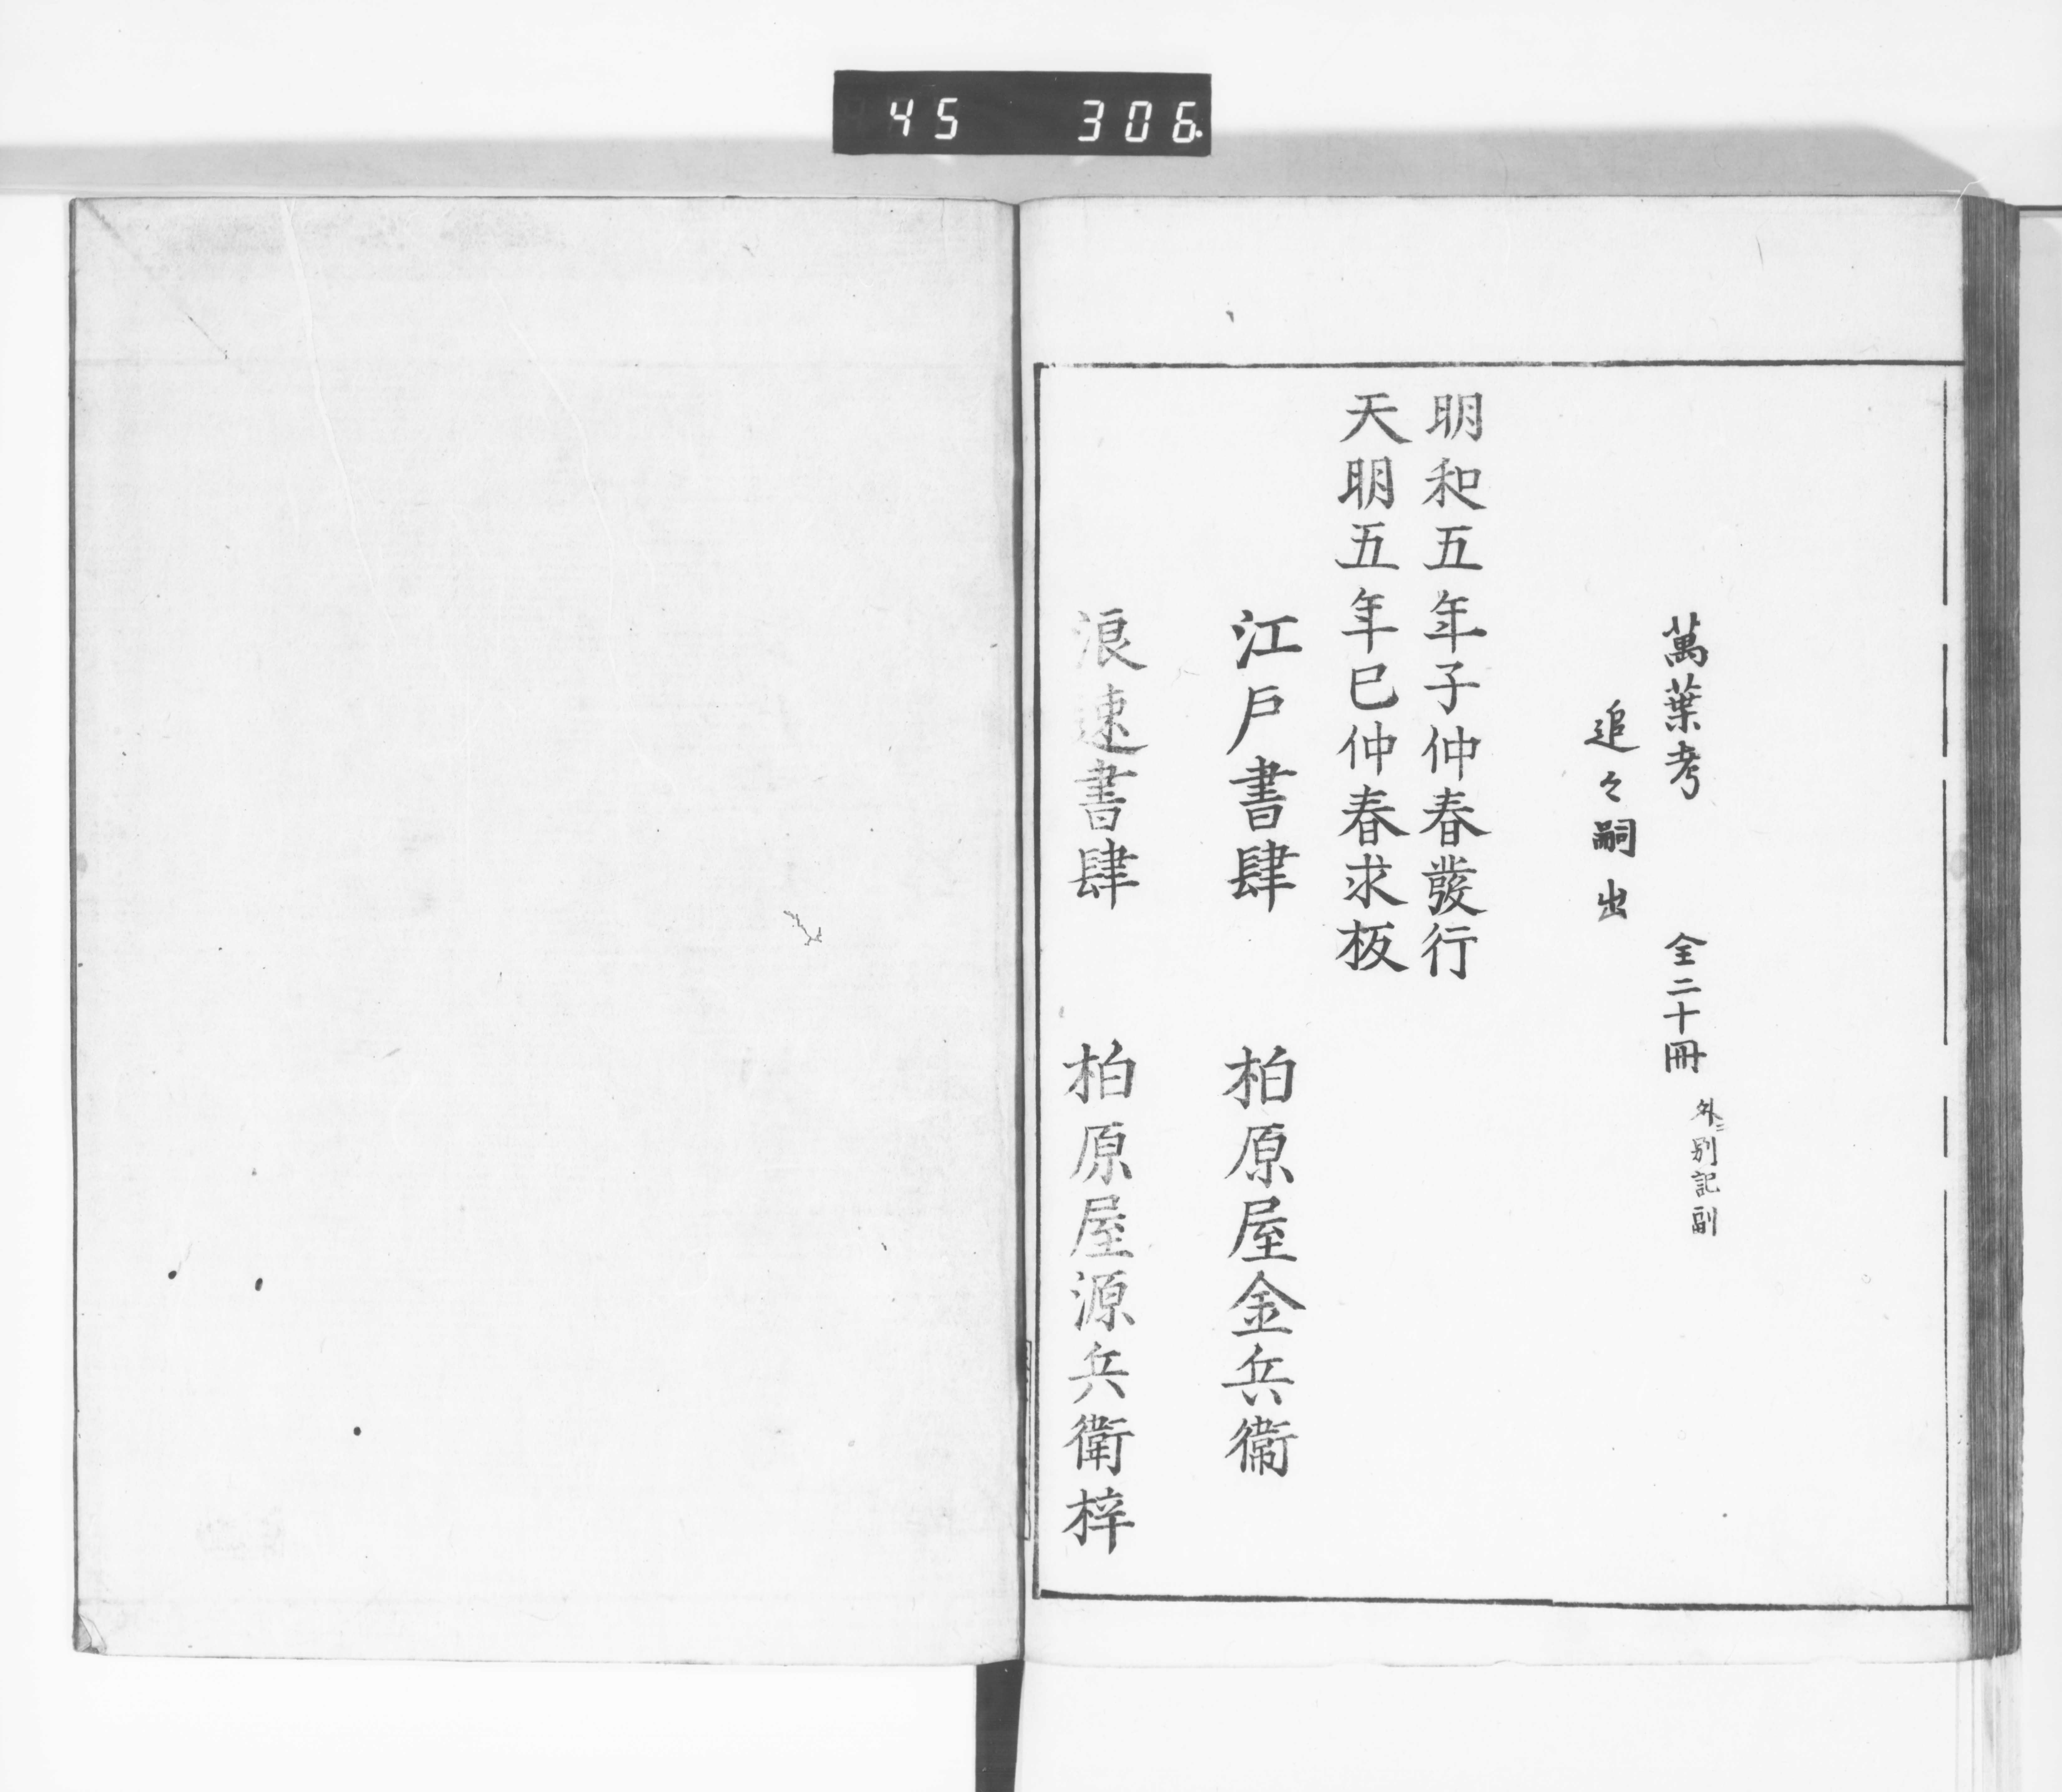 45 306
萬葉考 全二十冊 外ニ別記副
追々嗣出
明和五年子仲春發行
天明五年巳仲春求板
江戸書肆 柏原屋金兵衞
浪速書肆 柏原屋源兵衛梓